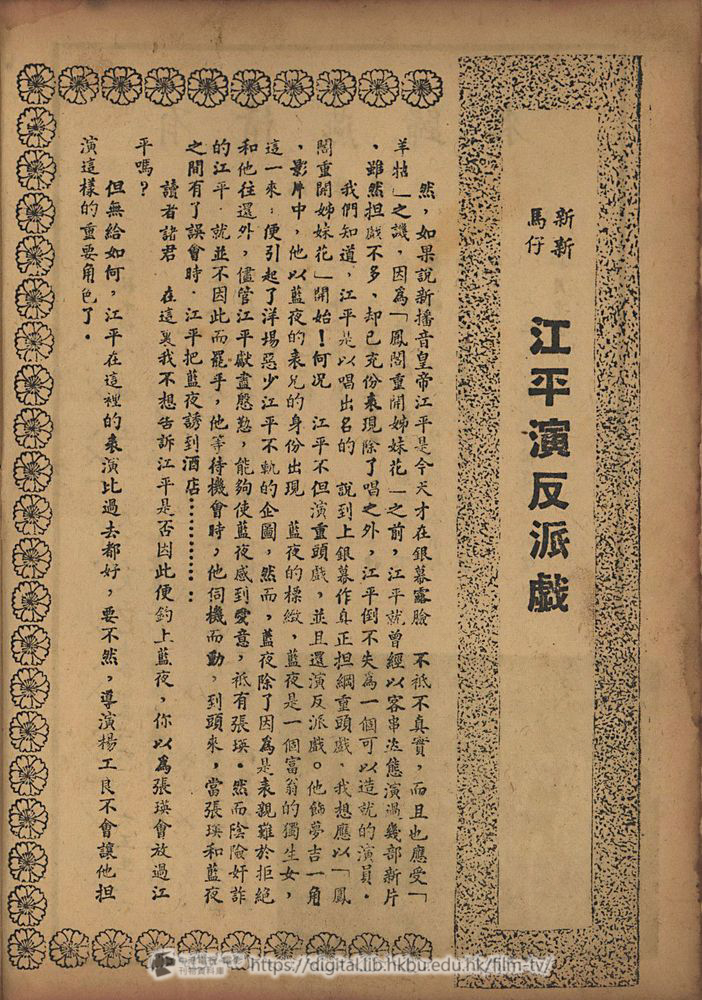 新新
馬仔
江平演反派戲
然，如果說新播音皇帝江平是今天才在銀幕露臉 不祇不真實，而且也應受「
羊牯」之譏，因為「鳳閣重開姊妹花」之前，江平就曾經以客串恣態演過幾部新片
，雖然担戲不多，却已充份表現除了唱之外，江平倒不失為一個可以造就的演員。
我們知道，江平是以唱出名的 說到上銀幕作真正担綱重頭戲，我想應以「鳳
閣重開姊妹花」開始！何況 江平不但演重頭戲，並且還演反派戲。他飾夢吉一角
，影片中，他以藍夜的表兄的身份出現 藍夜的標緻，藍夜是一個富翁的獨生女，
這一來，便引起了洋場惡少江平不軌的企圖，然而，藍夜除了因為是表親難於拒絕
和他往還外，儘管江平獻盡慇懃，能夠使藍夜感到愛意，祇有張瑛。然而陰險奸詐
的江平，就並不因此而罷乎，他等待機會時，他伺機而動，到頭來，當張瑛和藍夜
之間有了誤會時，江平把藍夜誘到酒店…………
讀者諸君 在這裏我不想告訴江平是否因此便釣上藍夜，你以為張瑛會放過江
平嗎？
但無給如何，江平在這裡的表演比過去都好，要不然，導演楊工良不會讓他担
演這樣的重要角色了。
https://digital.lib.hkbu.edu.hk/film-tv/